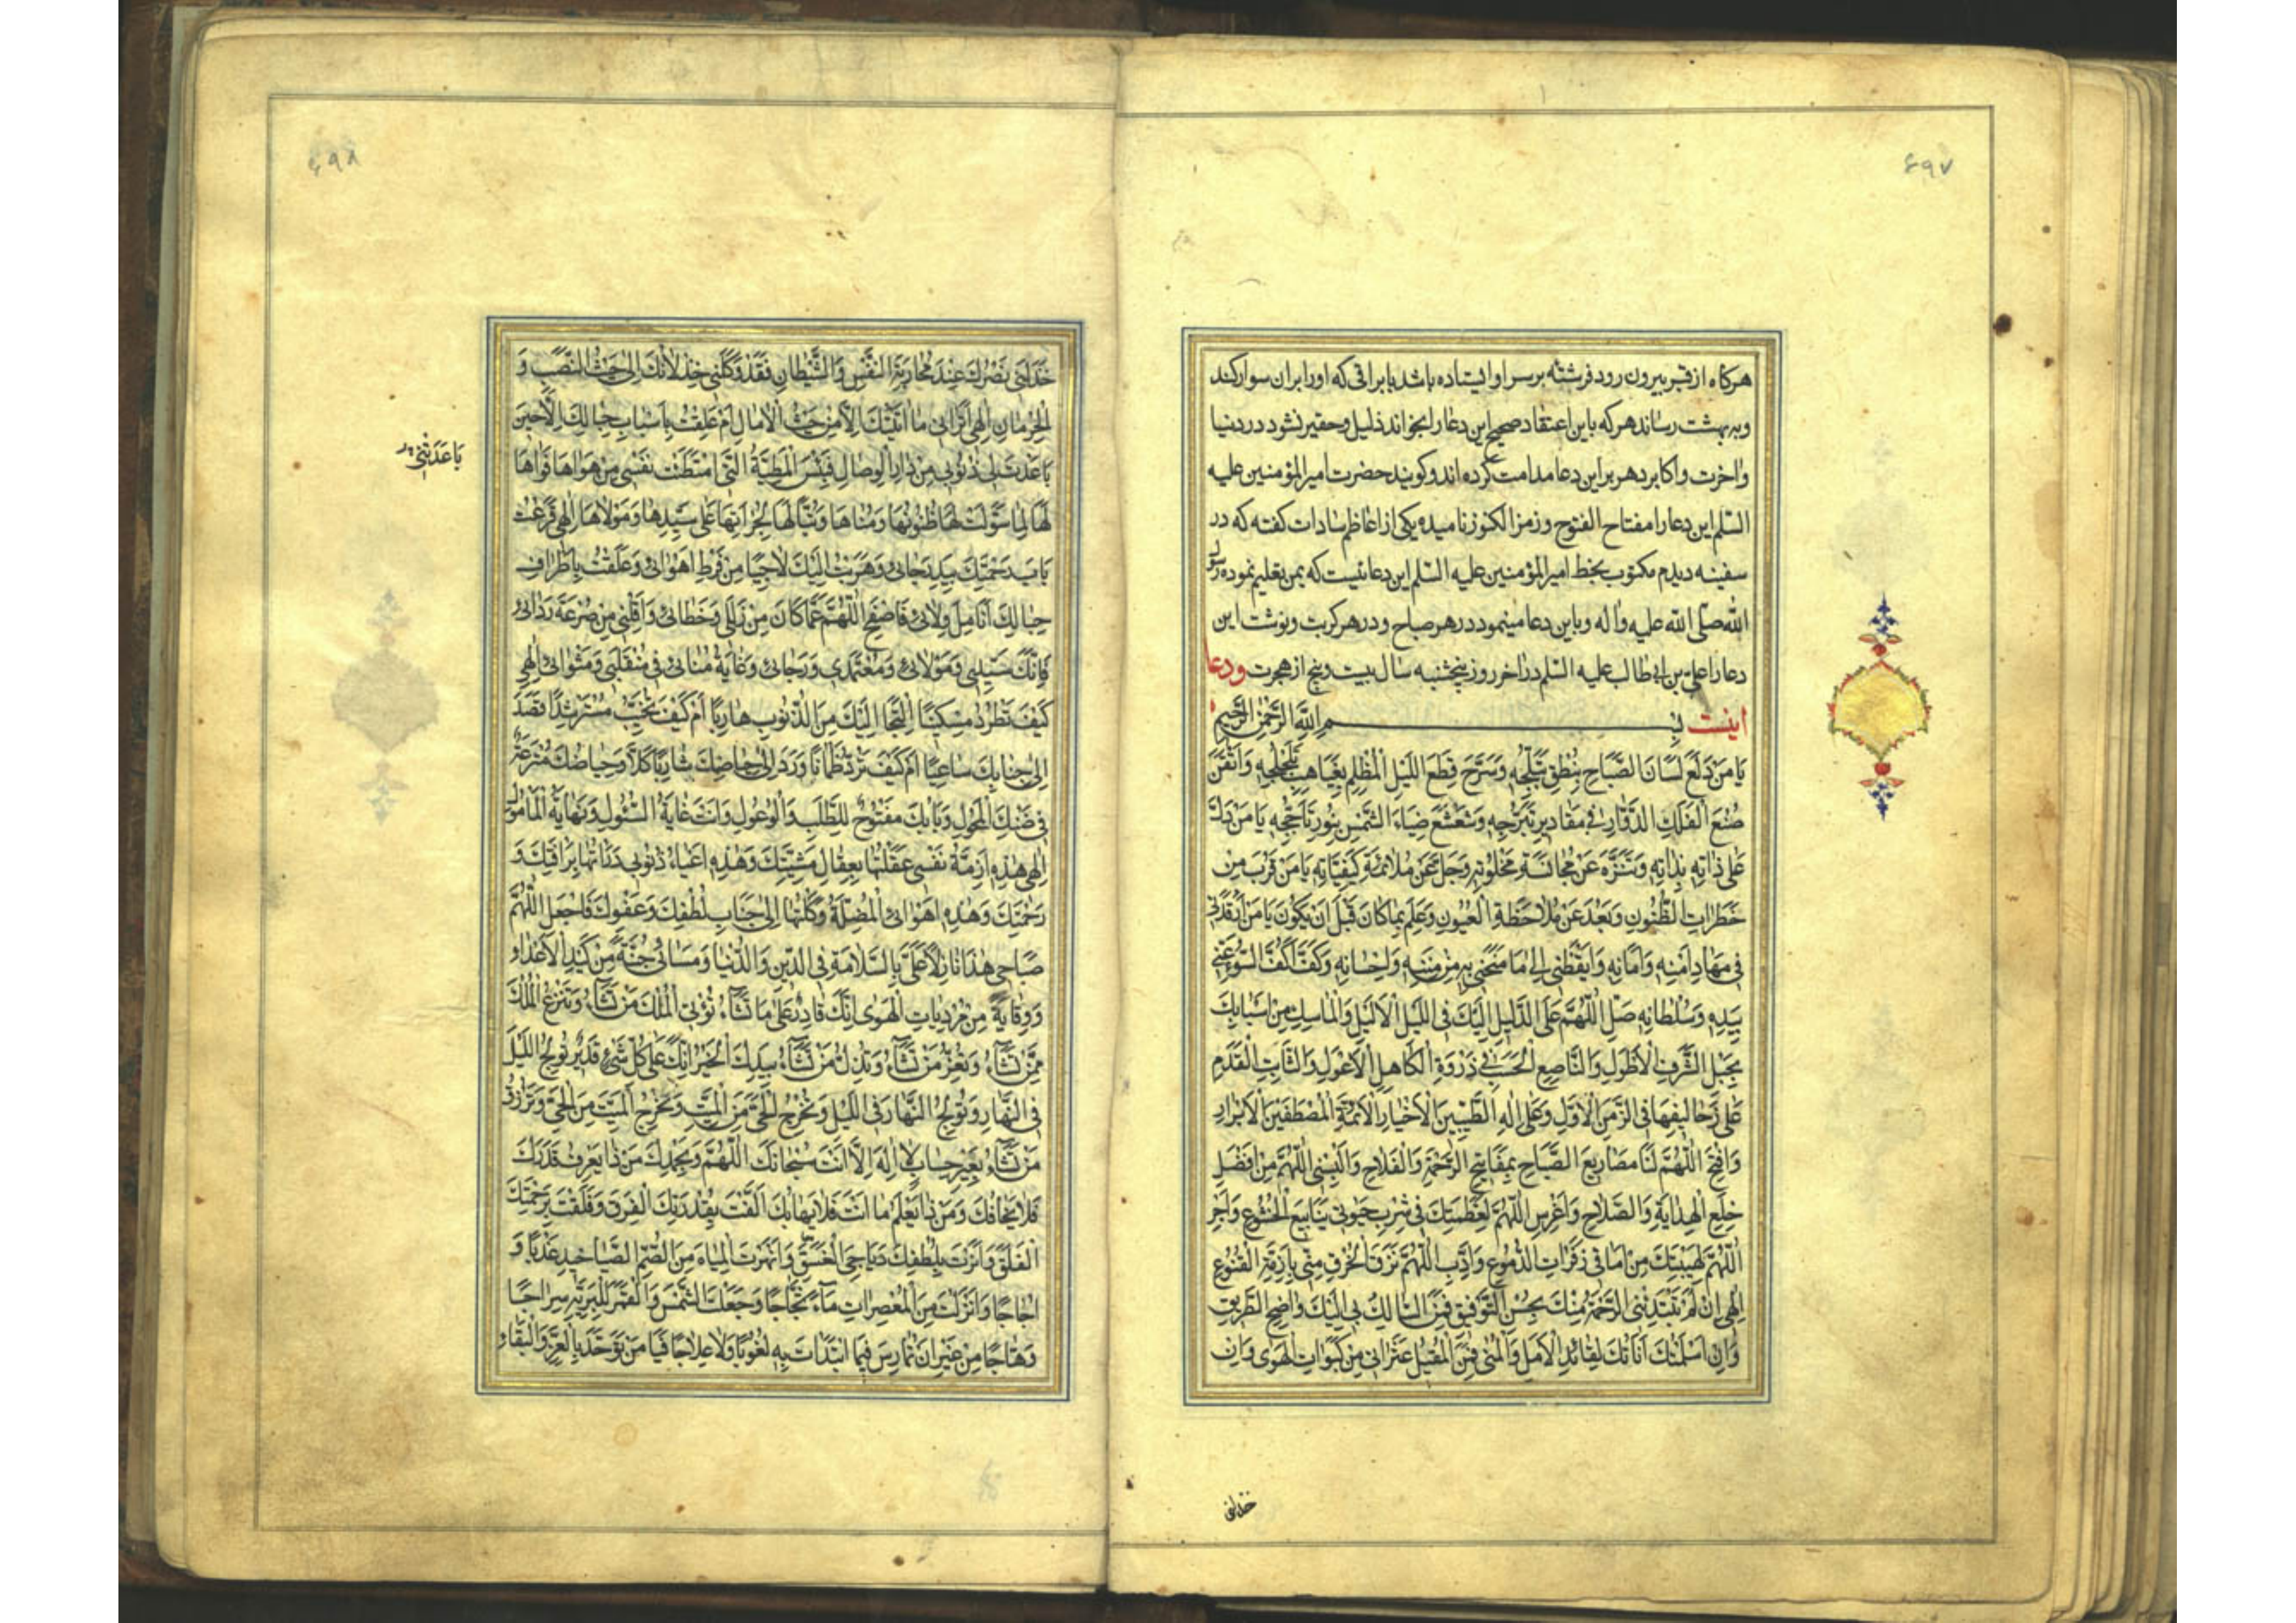 ۶۹۷
هرکاه از قبر بیرون رود فرشته بر سر او ایستاده باشد با براقی که او را بران سوار کند
و به بهشت رساند هر که باین اعتقاد صحیح این دعا را بخواند ذلیل و حقیر نشود در دنیا
و اخرت و اکابر دهر بر این دعا مدامت کرده اند و کویند حضرت امیر المؤمنین علیه
السلم این دعا را مفتاح الفتوح و رمز الکنوز نامیده یکی از اعاظم سادات کفته که در
سفینه دیدم مکتوب بخط امیر المؤمنین علیه السلم این دعائیست که بمن تعلیم نموده رسول
الله صلی الله علیه و اله و باین دعا مینمود در هر صباح و در هر کربت و نوشت این
دعا را علی بن ابی طالب علیه السلم در اخر روز پنجشنبه سال بیست و پنج از هجرت و دعا
اینست بسم الله الرحمن الرحیم
يَا مَنْ دَلَعَ لِسَانَ الصَّبَاحِ بِنُطْقِ تَبَلُّجِهِ وَسَرَّحَ قِطَعَ اللَّيْلِ الْمُظْلِمِ بِغَيَاهِبِ تَلَجْلُجِهِ وَاَتْقَنَ
صُنْعَ الْفَلَكِ الدَّوَّارِ فِي مَقَادِيرِ تَبَرُّجِهِ وَشَعْشَعَ ضِيَاءَ الشَّمْسِ بِنُورِ تَأَجُّجِهِ يَا مَنْ دَلَّ
عَلٰى ذَاتِهِ بِذَاتِهِ وَتَنَزَّهَ عَنْ مُجَانَسَةِ مَخْلُوقَاتِهِ وَجَلَّ عَنْ مُلَائَمَةِ كَيْفِيَّاتِهِ يَا مَنْ قَرُبَ مِنْ
خَطَرَاتِ الظُّنُونِ وَبَعُدَ عَنْ مُلَاحَظَةِ الْعُيُونِ وَعَلِمَ بِمَا كَانَ قَبْلَ اَنْ يَكُونَ يَا مَنْ اَرْقَدَنِي
فِي مِهَادِ اَمْنِهِ وَاَمَانِهِ وَاَيْقَظَنِي اِلٰى مَا مَنَحَنِي بِهِ مِنْ مِنَنِهِ وَاِحْسَانِهِ وَكَفَّ اَكُفَّ السُّوءِ عَنِّي
بِيَدِهِ وَسُلْطَانِهِ صَلِّ اللّٰهُمَّ عَلَى الدَّلِيلِ اِلَيْكَ فِي اللَّيْلِ الْاَلْيَلِ وَالْمَاسِكِ مِنْ اَسْبَابِكَ
بِحَبْلِ الشَّرَفِ الْاَطْوَلِ وَالنَّاصِعِ الْحَسَبِ فِي ذَرْوَةِ الْكَاهِلِ الْاَعْوَلِ وَالثَّابِتِ الْقَدَمِ
عَلٰى زَحَالِيفِهَا فِي الزَّمَنِ الْاَوَّلِ وَعَلٰى اٰلِهِ الطَّيِّبِينَ الْاَخْيَارِ الْاَئِمَّةِ الْمُصْطَفَيْنَ الْاَبْرَارِ
وَافْتَحِ اللّٰهُمَّ لَنَا مَصَارِيعَ الصَّبَاحِ بِمَفَاتِيحِ الرَّحْمَةِ وَالْفَلَاحِ وَاَلْبِسْنِي اللّٰهُمَّ مِنْ اَفْضَلِ
خِلَعِ الْهِدَايَةِ وَالصَّلَاحِ وَاغْرِسِ اللّٰهُمَّ لِعَظَمَتِكَ فِي شِرْبِ حَيٰوتِي يَنَابِيعَ الْخُشُوعِ وَاَجْرِ
اللّٰهُمَّ لِهَيْبَتِكَ مِنْ اٰمَاقِي زَفَرَاتِ الدُّمُوعِ وَاَدِّبِ اللّٰهُمَّ نَزَقَ الْخُرْقِ مِنِّي بِاَزِمَّةِ الْقُنُوعِ
اِلٰهِي اِنْ لَمْ تَبْتَدِئْنِي الرَّحْمَةُ مِنْكَ بِحُسْنِ التَّوْفِيقِ فَمَنِ السَّالِكُ بِي اِلَيْكَ وَاضِحَ الطَّرِيقِ
وَاِنْ اَسْلَمَتْنِي اَنَاتُكَ لِقَائِدِ الْاَمَلِ وَالْمُنٰى فَمَنِ الْمُقِيلُ عَثَرَاتِي مِنْ كَبَوَاتِ الْهَوٰى وَاِنْ
خذلنی
۶۹۸
خَذَلَنِي نَصْرُكَ عِنْدَ مُحَارَبَةِ النَّفْسِ وَالشَّيْطَانِ فَقَدْ وَكَلَنِي خِذْلَانُكَ اِلٰى حَيْثُ النَّصَبِ وَ
الْحِرْمَانِ اِلٰهِي اَتَرَانِي مَا اَتَيْتُكَ اِلَّا مِنْ حَيْثُ الْاٰمَالِ اَمْ عَلِقْتُ بِاَسْبَابِ حِبَالِكَ اِلَّا حِينَ
بَاعَدَتْ بِي ذُنُوبِي مِنْ دَارِ الْوِصَالِ فَبِئْسَ الْمَطِيَّةُ الَّتِي امْتَطَتْ نَفْسِي مِنْ هَوَاهَا فَوَاهًا
باعدتنی
لَهَا لِمَا سَوَّلَتْ لَهَا ظُنُونُهَا وَمُنَاهَا وَتَبًّا لَهَا لِجُرْاَتِهَا عَلٰى سَيِّدِهَا وَمَوْلَاهَا اِلٰهِي قَرَعْتُ
بَابَ رَحْمَتِكَ بِيَدِ رَجَائِي وَهَرَبْتُ اِلَيْكَ لَاجِيًا مِنْ فَرْطِ اَهْوَائِي وَعَلَّقْتُ بِاَطْرَافِ
حِبَالِكَ اَنَامِلَ وِلَائِي فَاصْفَحِ اللّٰهُمَّ عَمَّا كَانَ مِنْ زَلَلِي وَخَطَائِي وَاَقِلْنِي مِنْ صَرْعَةِ رَدَائِي
فَاِنَّكَ سَيِّدِي وَمَوْلَائِي وَمُعْتَمَدِي وَرَجَائِي وَغَايَةُ مُنَائِي فِي مُنْقَلَبِي وَمَثْوَائِي اِلٰهِي
كَيْفَ تَطْرُدُ مِسْكِينًا اِلْتَجَا اِلَيْكَ مِنَ الذُّنُوبِ هَارِبًا اَمْ كَيْفَ تُخَيِّبُ مُسْتَرْشِدًا قَصَدَ
اِلٰى جَنَابِكَ سَاعِيًا اَمْ كَيْفَ تَرُدُّ ظَمْاٰنًا وَرَدَ اِلٰى حِيَاضِكَ شَارِبًا كَلَّا وَحِيَاضُكَ مُتْرَعَةٌ
فِي ضَنْكِ الْمُحُولِ وَبَابُكَ مَفْتُوحٌ لِلطَّلَبِ وَالْوُغُولِ وَاَنْتَ غَايَةُ السُّئُولِ وَنِهَايَةُ الْمَأْمُولِ
اِلٰهِي هٰذِهِ اَزِمَّةُ نَفْسِي عَقَلْتُهَا بِعِقَالِ مَشِيَّتِكَ وَهٰذِهِ اَعْبَاءُ ذُنُوبِي دَرَأْتُهَا بِرَأْفَتِكَ وَ
رَحْمَتِكَ وَهٰذِهِ اَهْوَائِي الْمُضِلَّةُ وَكَلْتُهَا اِلٰى جَنَابِ لُطْفِكَ وَعَفْوِكَ فَاجْعَلِ اللّٰهُمَّ
صَبَاحِي هٰذَا نَازِلًا عَلَيَّ بِالسَّلَامَةِ فِي الدِّينِ وَالدُّنْيَا وَمَسَائِي جُنَّةً مِنْ كَيْدِ الْاَعْدَاءِ
وَوِقَايَةً مِنْ مُرْدِيَاتِ الْهَوٰى اِنَّكَ قَادِرٌ عَلٰى مَا تَشَاءُ تُؤْتِي الْمُلْكَ مَنْ تَشَاءُ وَتَنْزِعُ الْمُلْكَ
مِمَّنْ تَشَاءُ وَتُعِزُّ مَنْ تَشَاءُ وَتُذِلُّ مَنْ تَشَاءُ بِيَدِكَ الْخَيْرُ اِنَّكَ عَلٰى كُلِّ شَيْءٍ قَدِيرٌ تُولِجُ اللَّيْلَ
فِي النَّهَارِ وَتُولِجُ النَّهَارَ فِي اللَّيْلِ وَتُخْرِجُ الْحَيَّ مِنَ الْمَيِّتِ وَتُخْرِجُ الْمَيِّتَ مِنَ الْحَيِّ وَتَرْزُقُ
مَنْ تَشَاءُ بِغَيْرِ حِسَابٍ لَا اِلٰهَ اِلَّا اَنْتَ سُبْحَانَكَ اللّٰهُمَّ وَبِحَمْدِكَ مَنْ ذَا يَعْرِفُ قَدْرَكَ
فَلَا يَخَافُكَ وَمَنْ ذَا يَعْلَمُ مَا اَنْتَ فَلَا يَهَابُكَ اَلَّفْتَ بِقُدْرَتِكَ الْفِرَقَ وَفَلَقْتَ بِرَحْمَتِكَ
الْفَلَقَ وَاَنَرْتَ بِلُطْفِكَ دَيَاجِيَ الْغَسَقِ وَاَنْهَرْتَ الْمِيَاهَ مِنَ الصُّمِّ الصَّيَاخِيدِ عَذْبًا وَ
اُجَاجًا وَاَنْزَلْتَ مِنَ الْمُعْصِرَاتِ مَاءً ثَجَّاجًا وَجَعَلْتَ الشَّمْسَ وَالْقَمَرَ لِلْبَرِيَّةِ سِرَاجًا
وَهَّاجًا مِنْ غَيْرِ اَنْ تُمَارِسَ فِيمَا ابْتَدَأْتَ بِهِ لُغُوبًا وَلَا عِلَاجًا فَيَا مَنْ تَوَحَّدَ بِالْعِزِّ وَالْبَقَاءِ